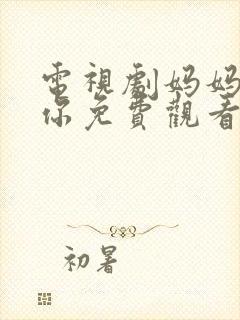 電視劇妈妈
你免費觀看
初暑